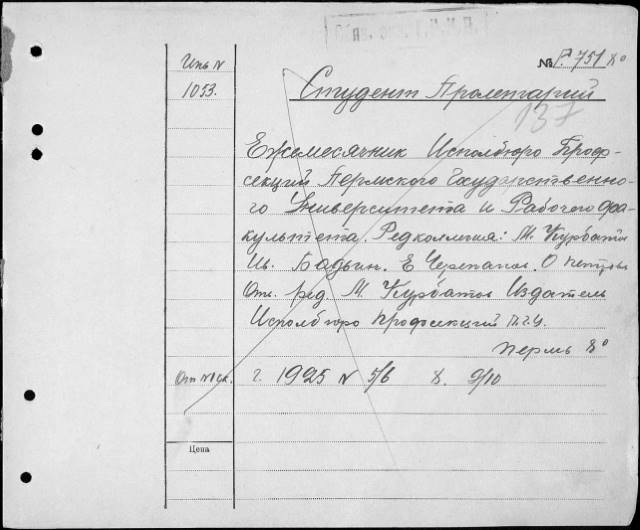 Инв N
1053.
№ Р. 751 8°
Студент Пролетарий
137
Ежемесячник Исполбюро Проф-
секций Пермского Государственно-
го Университета и Рабочего фа-
культета. Редколлегия: М. Курбатов
Ив. Бадьин. Е Черепанов. О Петрова
Отв. ред. М. Курбатов Издатель
Исполбюро профсекций П.Г.У.
Пермь 8°
г. 1925 N 5/6 8. 9/10
Цена